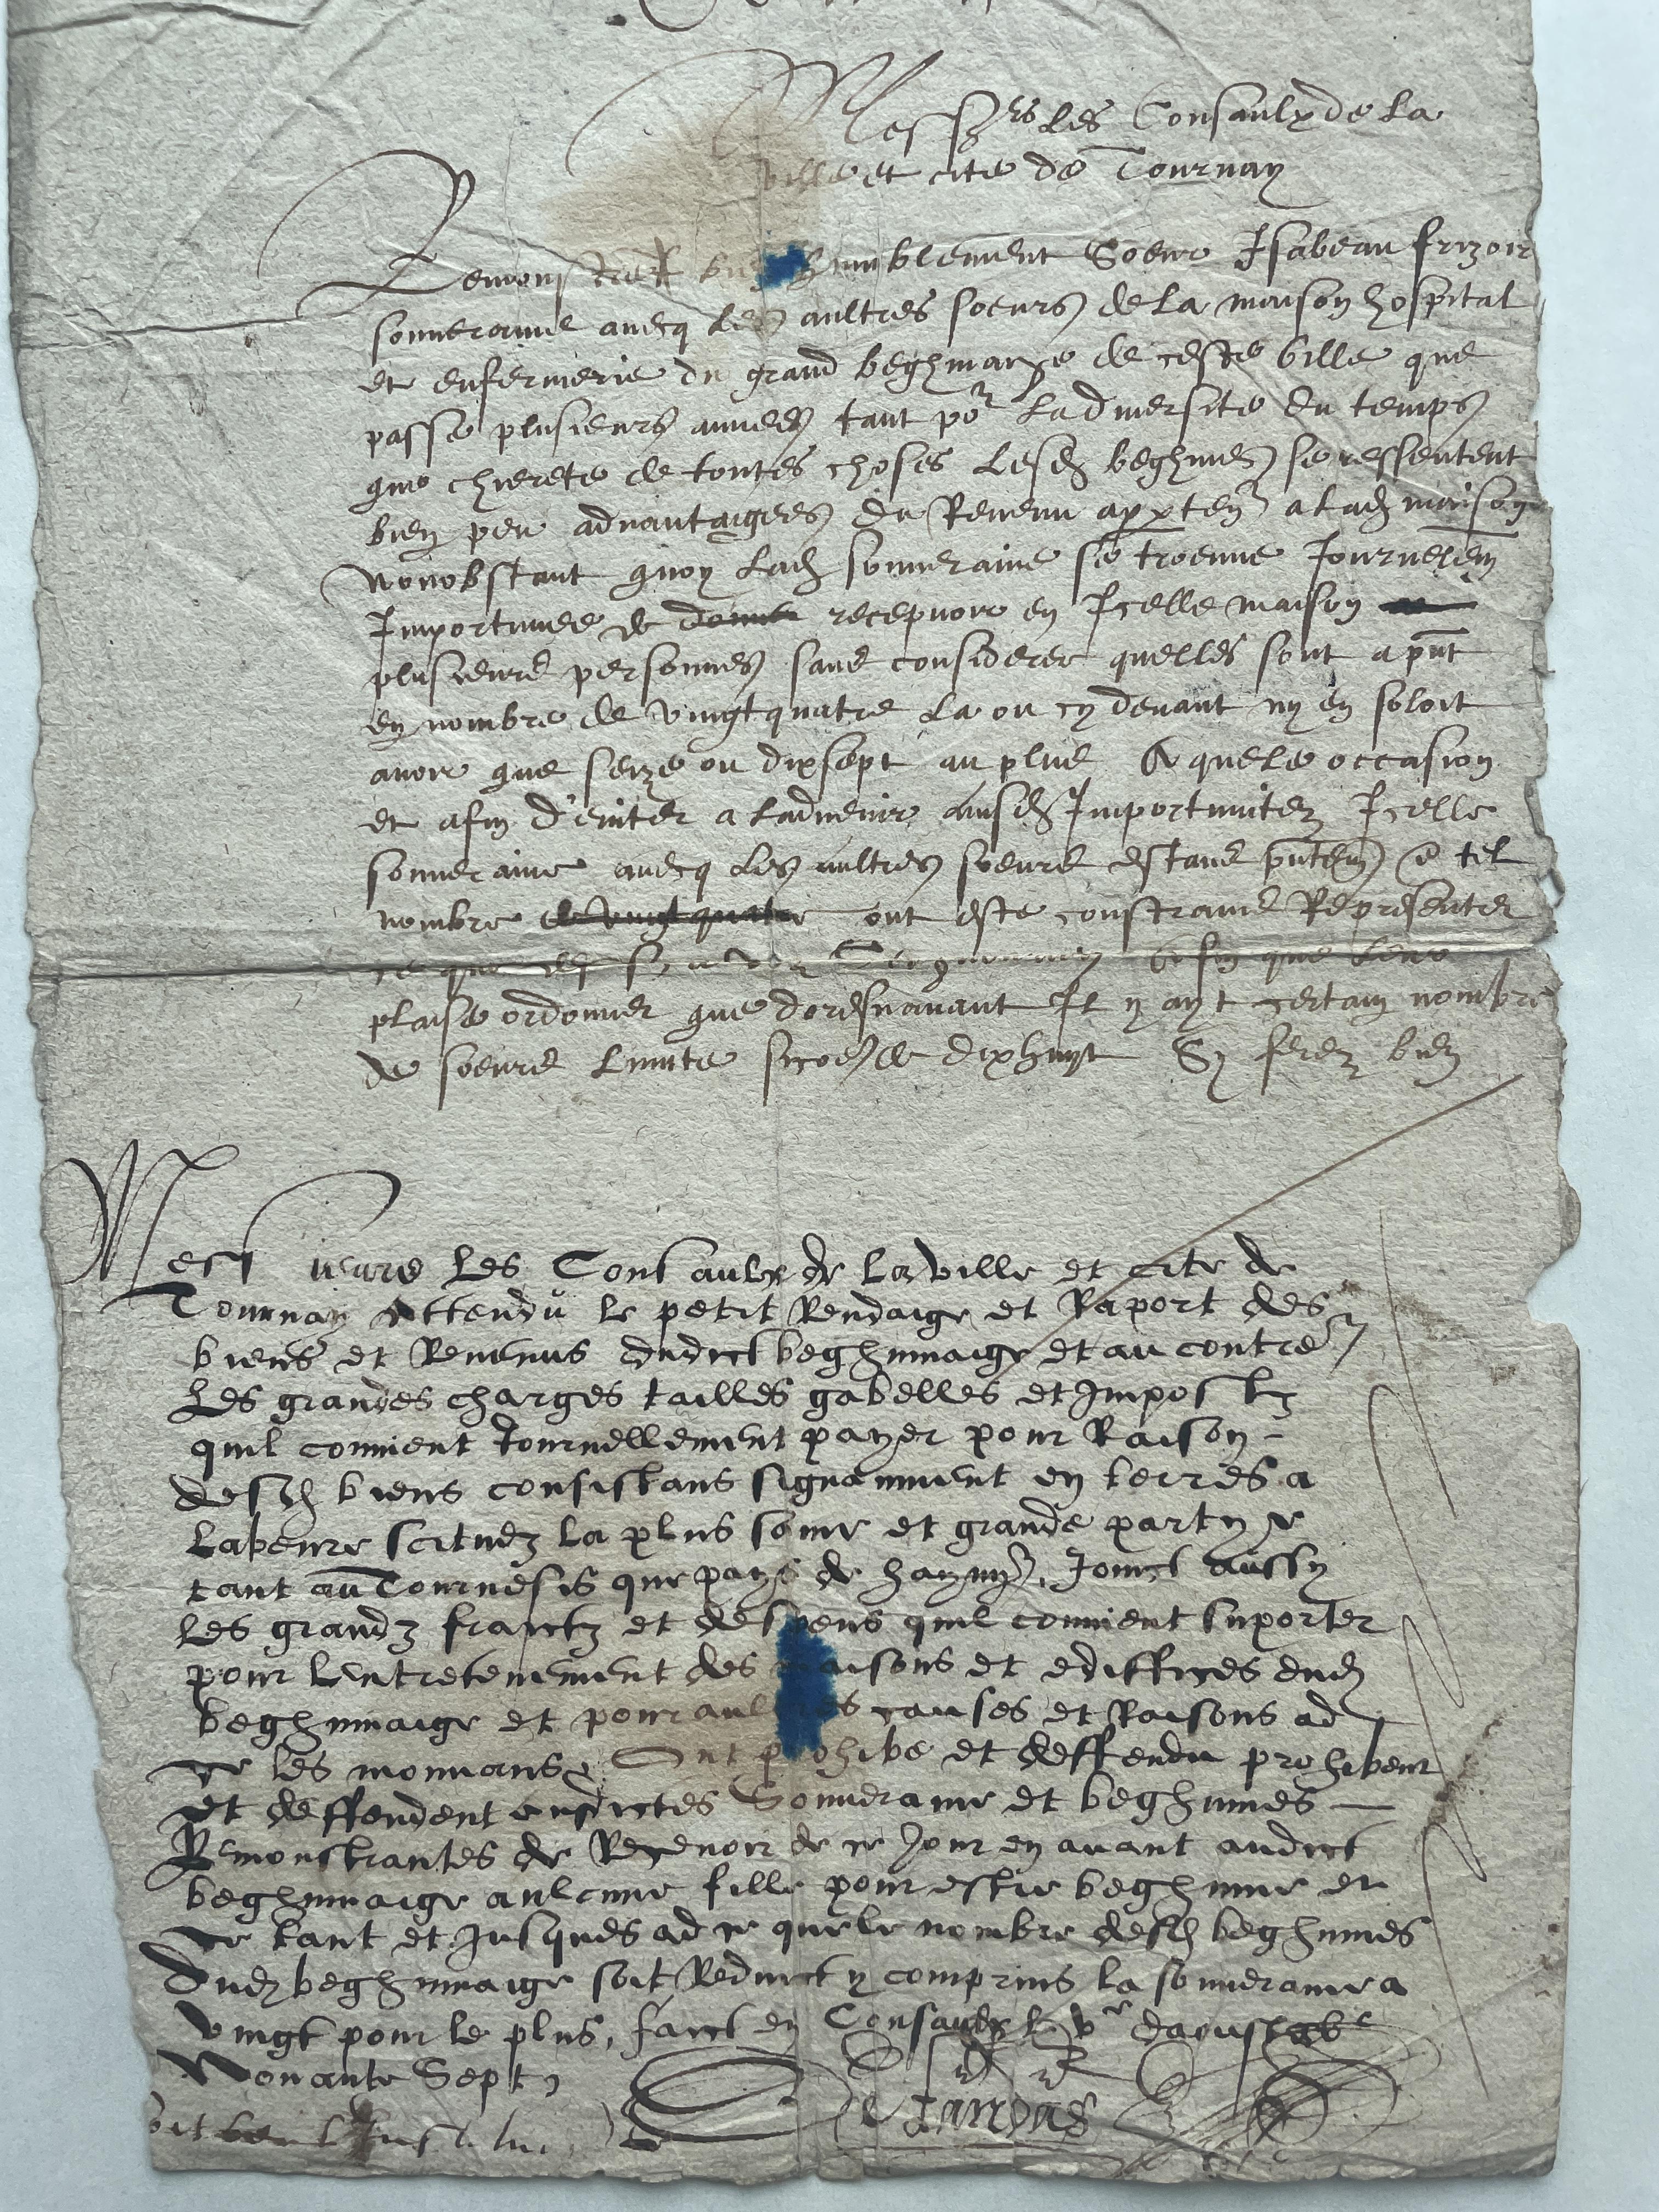 Mess.rs les Consaulx de la
ville et cite de Tournay
Remonstrent humblement Soeur Isabeau frizon
souveraine avecq les aultres soeurs de la maison hospital
et enfermerie du grand beghinaige de ceste ville que
passe plusieurs annees tant por ladversite du temps
que chierete de toutes choses lesd beghines se ressentent
bien peu advantaigees du Revenu apperten a lad maison
nonobstant quoy lad souveraine se troeuve Journelem
Importunee de recepvoir en Icelle maison
plusieurs personnes sans considerer quelles sont a pnt
en nombre de vingtquatre la ou cy devant ny en soloit
avoir que seize ou dixsept au plus A quele occasion
et afin d'eviter a ladvenir ausd Importunitez Icelle
souveraine avecq les aultres soeurs estans pntem e tel
nombre de vingt quatre ont este constrains Representer
ce que afin que leur
plaise ordonner que doresnavant Il y ayt certain nombre
de soeurs limite de dixhuyt Sy ferez bien
Messieurs les Consaulx de la ville et cite de
Tournay Attendu le petit Rendaige et Raport des
biens et Revenus dudict beghinnaige et au contre
les grandes charges tailles gabelles et Impostz
quil convient Journellement payer pour Raison
desd biens consistans signamment en terres a
labeure scituez la plus saine et grande partye
tant au Tournesis que pays de haynn. Joinct aussy
les grandz fraictz et despens quil convient suporter
pour lentretenement des maisons et ediffices dud
beghinnaige et pour aultres causes et Raisons ad
ce les mouvans, Ont prohibe et deffendu prohibent
et deffendent ausdictes Souveraine et beghinnes
Remonstrantes de Recevoir de ce Jour en avant audict
beghinnaige aulcune fille pour estre beghinne et
ce tant et Jusques ad ce que le nombre desd beghinnes
Dud beghinnaige soit Reduict y comprins la souveraine a
vingt pour le plus, faict en Consaulx le ve daoust
Nonante Sept